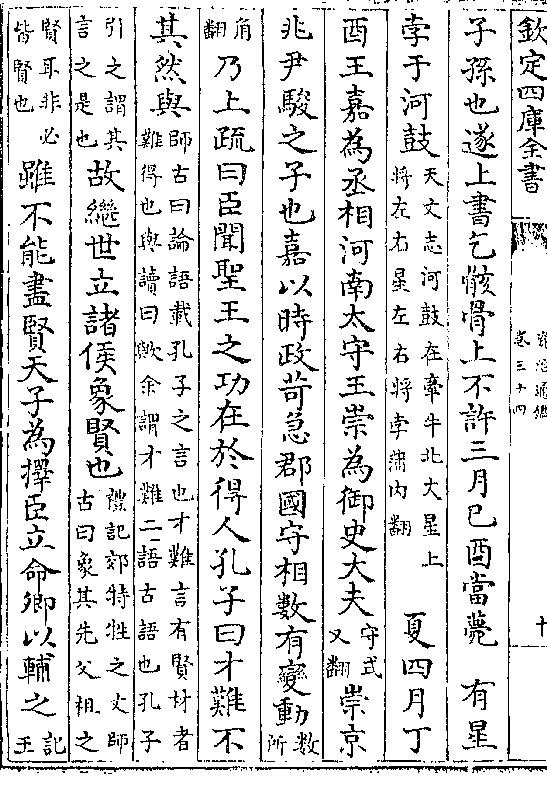 欽定四庫全書
資治通鑑
卷三十四
十
子孫也遂上書乞骸骨上不許三月已酉當薨　有星
孛于河鼓
天文志河鼓在牽牛北大星上
將左右星左右將孛蒲内翻
夏四月丁
酉王嘉為丞相河南太守王崇為御史大夫
守式
又翻
崇京
兆尹駿之子也嘉以時政苛急郡國守相數有變動
數
所
角
翻
乃上疏曰臣聞聖王之功在於得人孔子曰才難不
其然與
師古曰論語載孔子之言也才難言有賢材者
難得也與讀曰歟余謂才難二語古語也孔子
引之謂其
言之是也
故繼世立諸侯象賢也
禮記郊特牲之文師
古曰象其先父祖之
賢耳非必
皆賢也
雖不能盡賢天子為擇臣立命卿以輔之
記
王